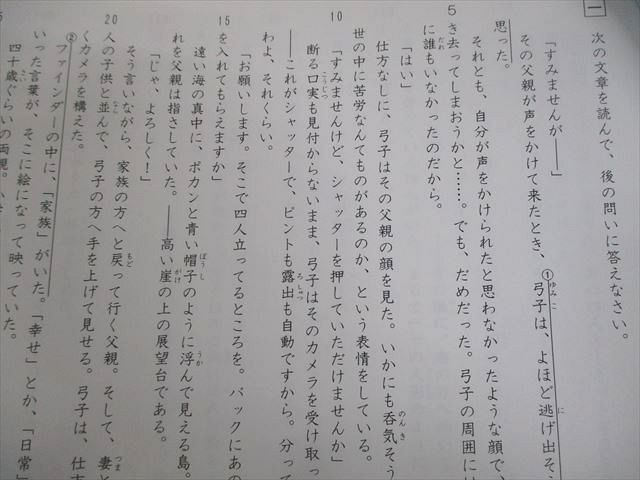 一 次の文章を読んで、後の問いに答えなさい。
「すみませんが――」
その父親が声をかけて来たとき、①弓子は、よほど逃げ出そ
思った。
それとも、自分が声をかけられたと思わなかったような顔で、
5 き去ってしまおうかと……。でも、だめだった。弓子の周囲に
に誰もいなかったのだから。
「はい」
仕方なしに、弓子はその父親の顔を見た。いかにも呑気そう
世の中に苦労なんてものがあるのか、という表情をしている。
10 「すみませんけど、シャッターを押していただけませんか」
断る口実も見付からないまま、弓子はそのカメラを受け取っ
――これがシャッターで、ピントも露出も自動ですから。分って
わよ、それくらい。
「お願いします。そこで四人立ってるところを。バックにあの
15 を入れてもらえますか」
遠い海の真中に、ポカンと青い帽子のように浮んで見える島。
れを父親は指さしていた。――高い崖の上の展望台である。
「じゃ、よろしく!」
そう言いながら、家族の方へと戻って行く父親。そして、妻と
20 人の子供と並んで、弓子の方へ手を上げて見せる。弓子は、仕方
くカメラを構えた。
②ファインダーの中に、「家族」がいた。「幸せ」とか、「日常」
いった言葉が、そこに絵になって映っていた。
四十歳ぐらいの両親。